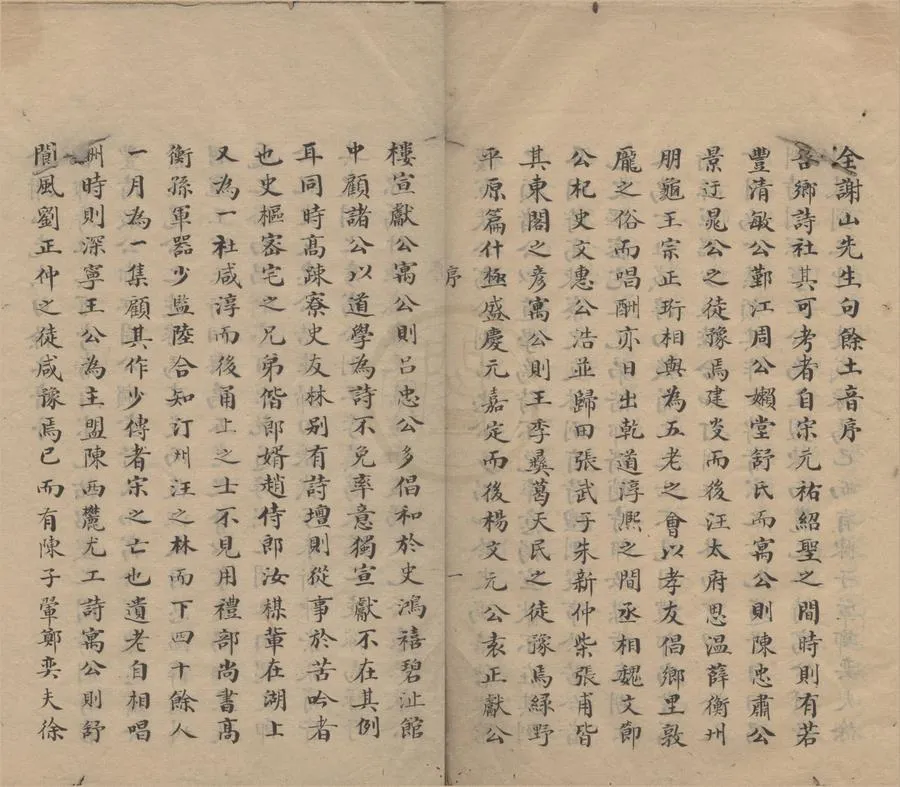 全謝山先生句餘土音序
吾鄉詩社其可考者自宋元祐紹聖之間時則有若
豐清敏公鄞江周公嬾堂舒氏而寓公則陳忠肅公
景迂晁公之徒豫焉建炎而後汪太府思溫薛衡州
朋龜王宗正珩相與為五老之會以孝友倡鄉里敦
龎之俗而唱酬亦日出乾道淳熈之間丞相魏文節
公杞史文惠公浩並歸田張武子朱新仲柴張甫皆
其東閣之彥寓公則王季彝葛天民之徒豫焉綠野
平原篇什極盛慶元嘉定而後楊文元公袁正獻公
序
一
樓宣獻公寓公則呂忠公多倡和於史鴻禧碧沚館
中顧諸公以道學為詩不免率意獨宣獻不在其例
耳同時高疎寮史友林别有詩壇則從事於苦吟者
也史樞密宅之兄弟偕郎婿趙侍郎汝楳輩在湖上
又為一社咸淳而後甬上之士不見用禮部尚書高
衡孫軍器少監陸合知汀州汪之林而下四十餘人
一月為一集顧其作少傳者宋之亡也遺老自相唱
酬時則深寧王公為主盟陳西麓尤工詩寓公則舒
閬風劉正仲之徒咸豫焉已而有陳子翬鄭奕夫徐